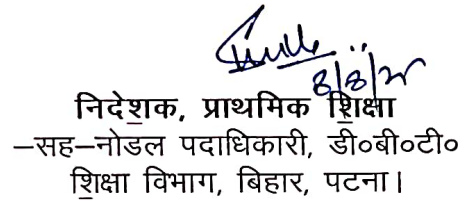 8/8/25
निदेशक, प्राथमिक शिक्षा
–सह–नोडल पदाधिकारी, डी०बी०टी०
शिक्षा विभाग, बिहार, पटना।